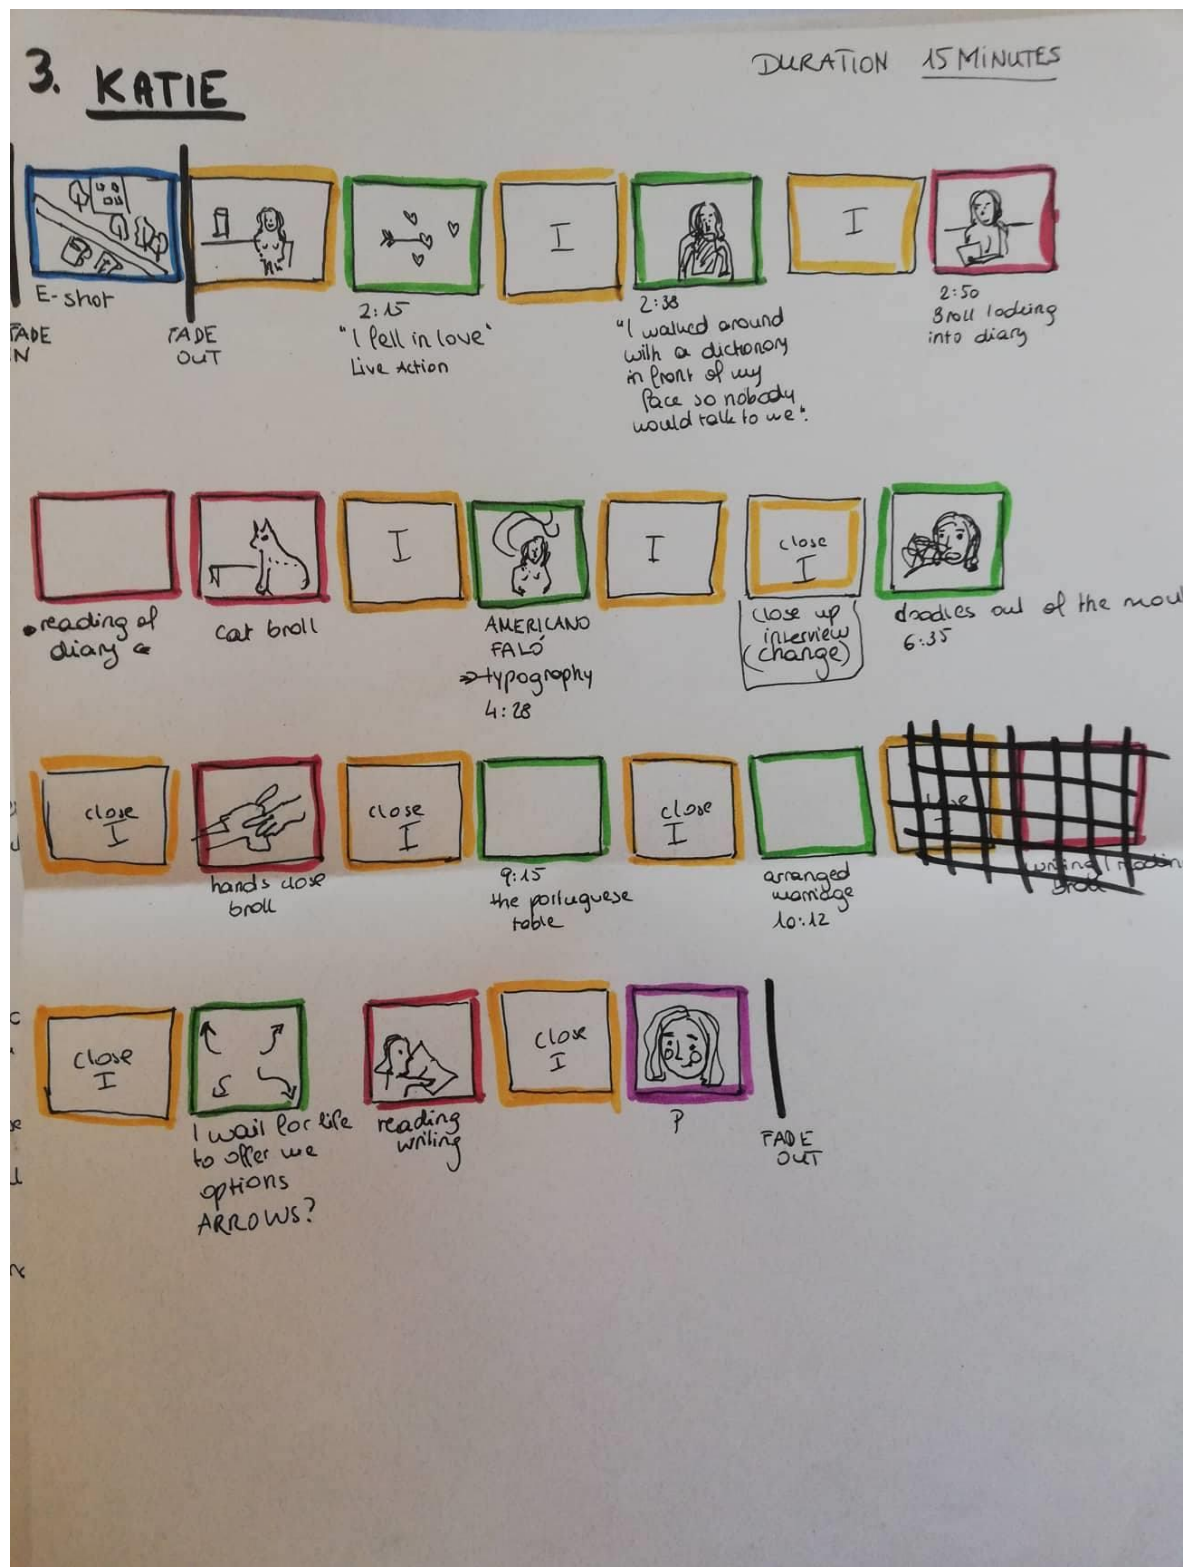 3. KATIE
DURATION 15 MINUTES
I
I
E-shot
FADE
OUT
2:15
"I fell in love"
Live Action
2:38
"I walked around
with a dictonary
in front of my
face so nobody
would talk to me".
2:50
Broll looking
into diary
I
I
close
I
reading of
diary
cat broll
AMERICANO
FALÓ
typography
4:28
close up
interview
(change)
doodles out of the mou
6:35
close
I
close
I
close
I
hands close
broll
9:15
the portuguese
table
arranged
marridge
10:12
close
I
close
I
I wait for life
to offer me
options
ARROWS?
reading
writing
P
FADE
OUT